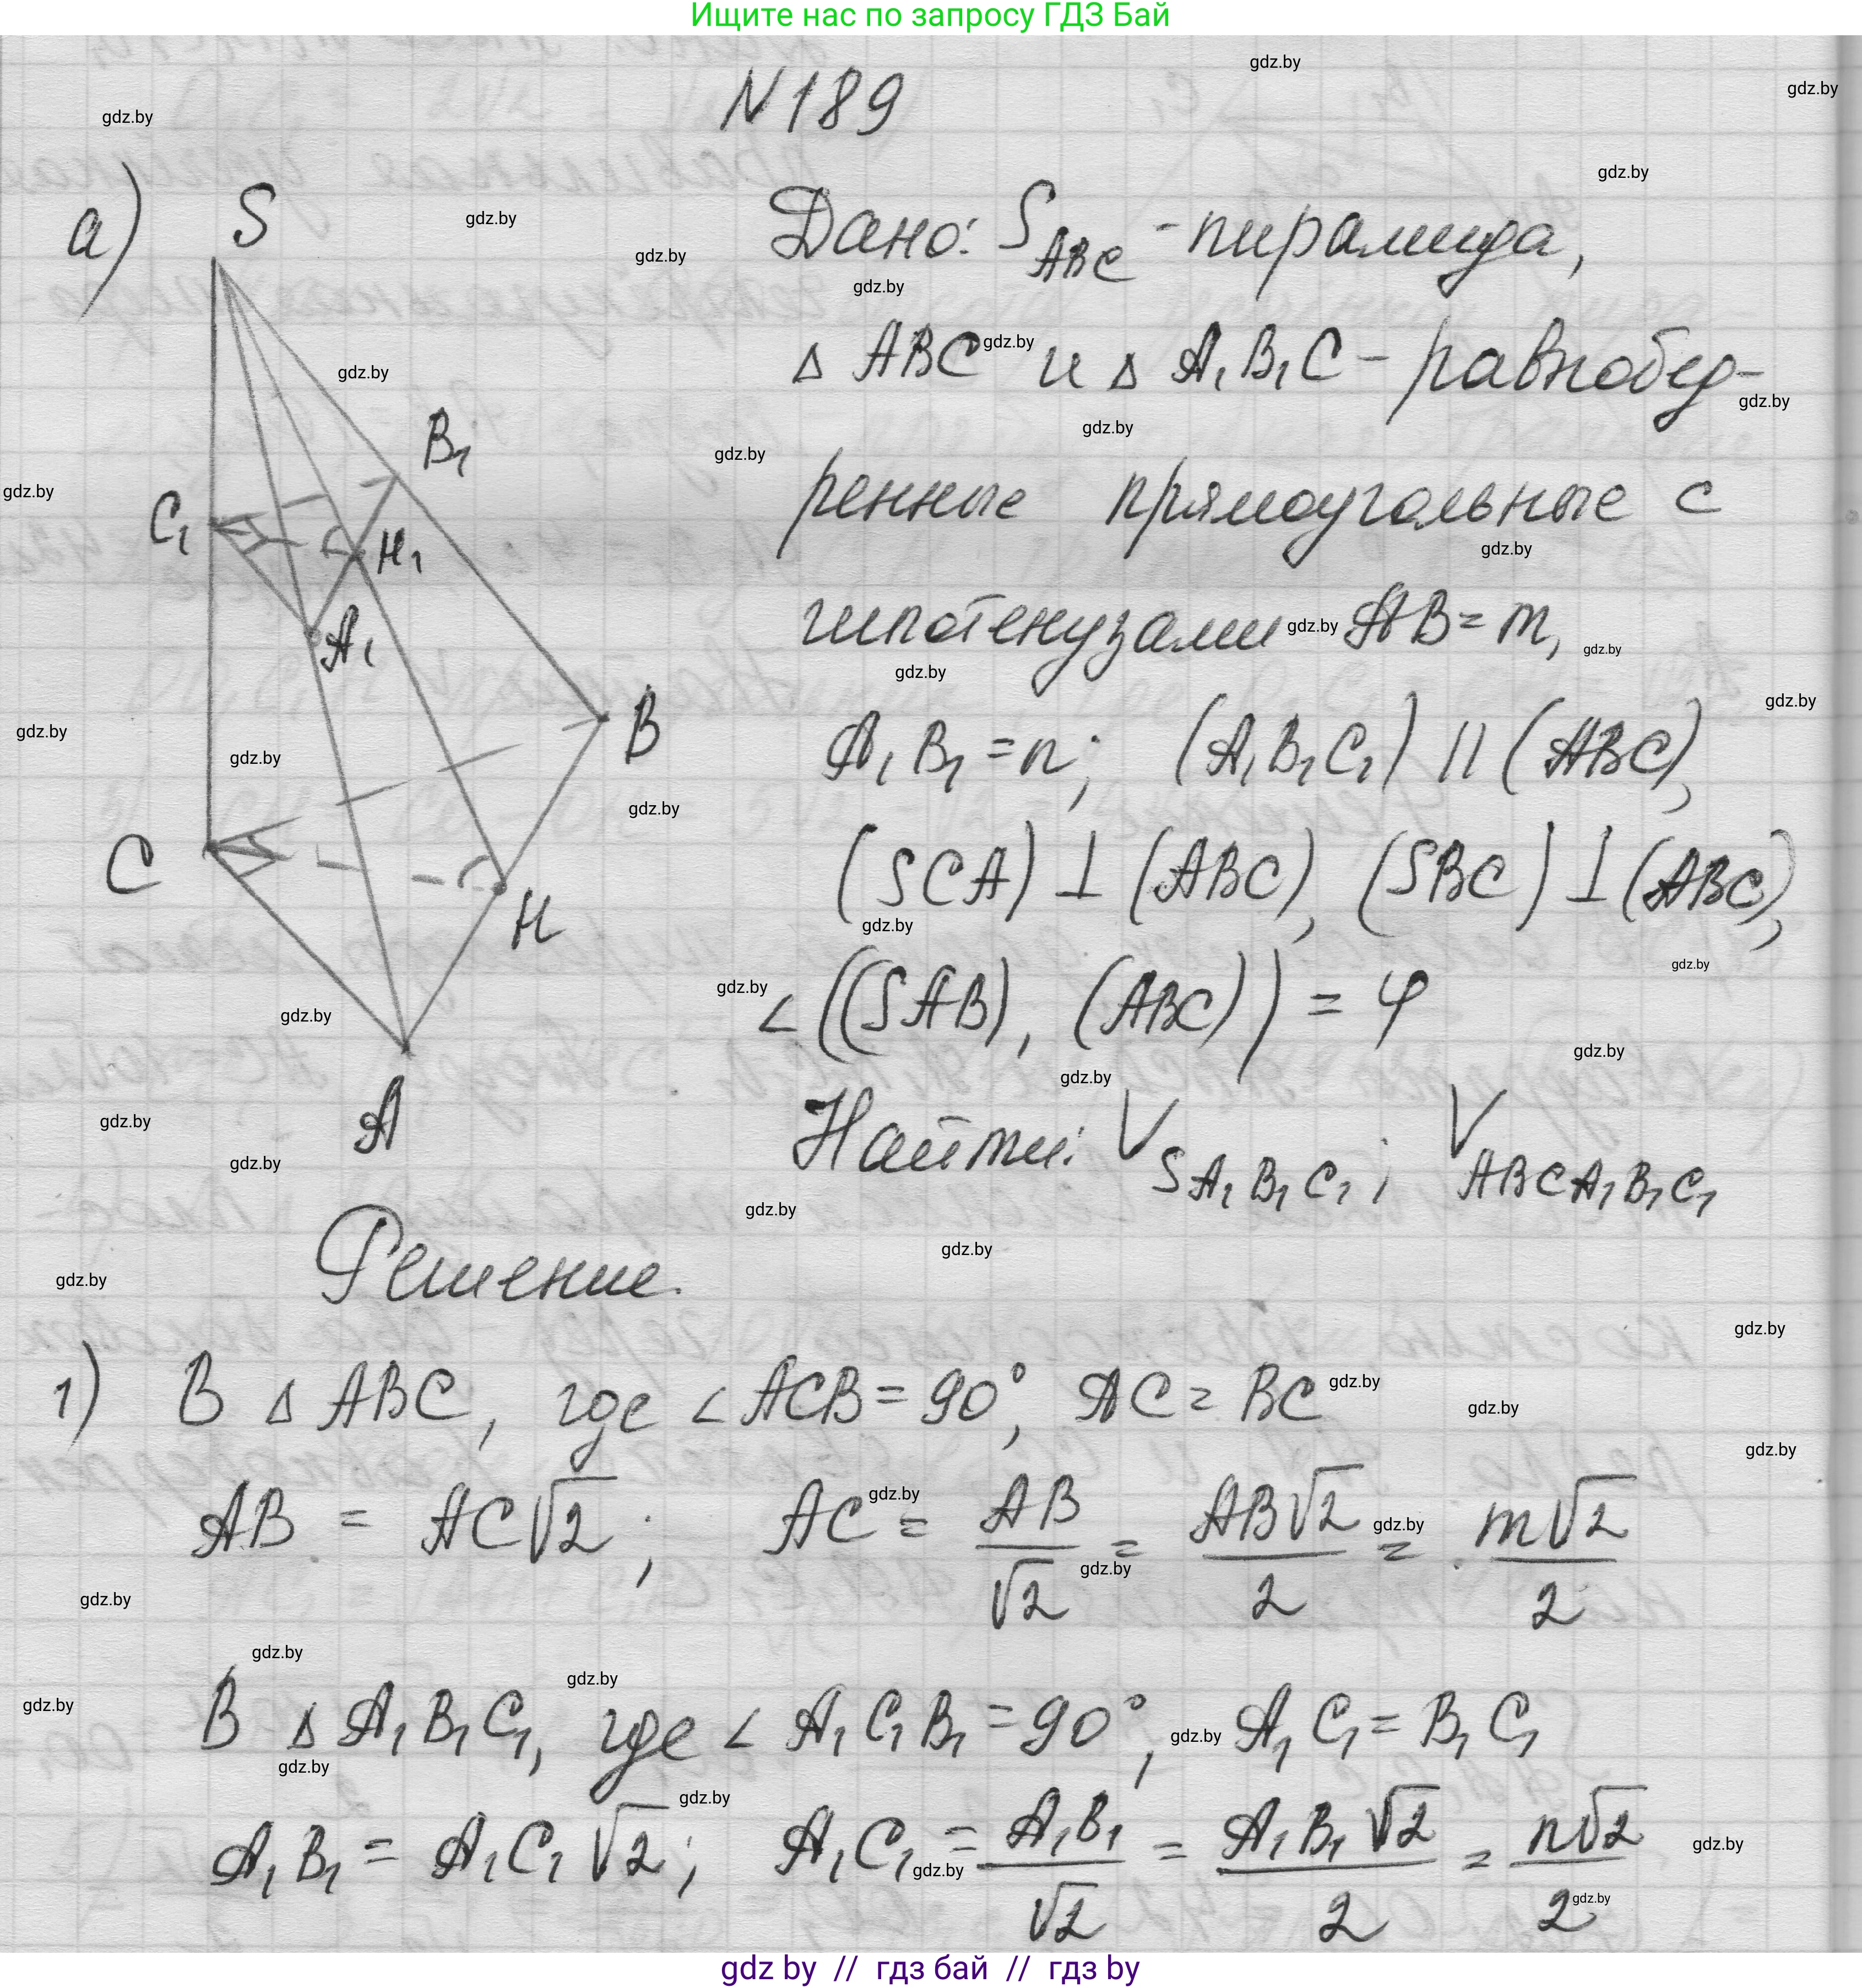 Ищите нас по запросу ГДЗ Бай
N189
а)
S
B₁
C₁
H₁
A₁
B
C
H
A
Дано: S_ABC - пирамида,
Δ ABC и Δ A₁B₁C - равнобед-
ренные прямоугольные с
гипотенузами AB = m,
A₁B₁ = n; (A₁B₁C₁) || (ABC),
(SCA) ⊥ (ABC), (SBC) ⊥ (ABC),
∠((SAB), (ABC)) = φ
Найти: V_SA₁B₁C₁; V_ABCA₁B₁C₁
Решение.
1) В Δ ABC, где ∠ACB = 90°, AC = BC
AB = AC√2; AC = AB/√2 = AB√2/2 = m√2/2
В Δ A₁B₁C₁, где ∠ A₁C₁B₁ = 90°, A₁C₁ = B₁C₁
A₁B₁ = A₁C₁√2; A₁C₁ = A₁B₁/√2 = A₁B₁√2/2 = n√2/2
gdz by // гдз бай // гдз by